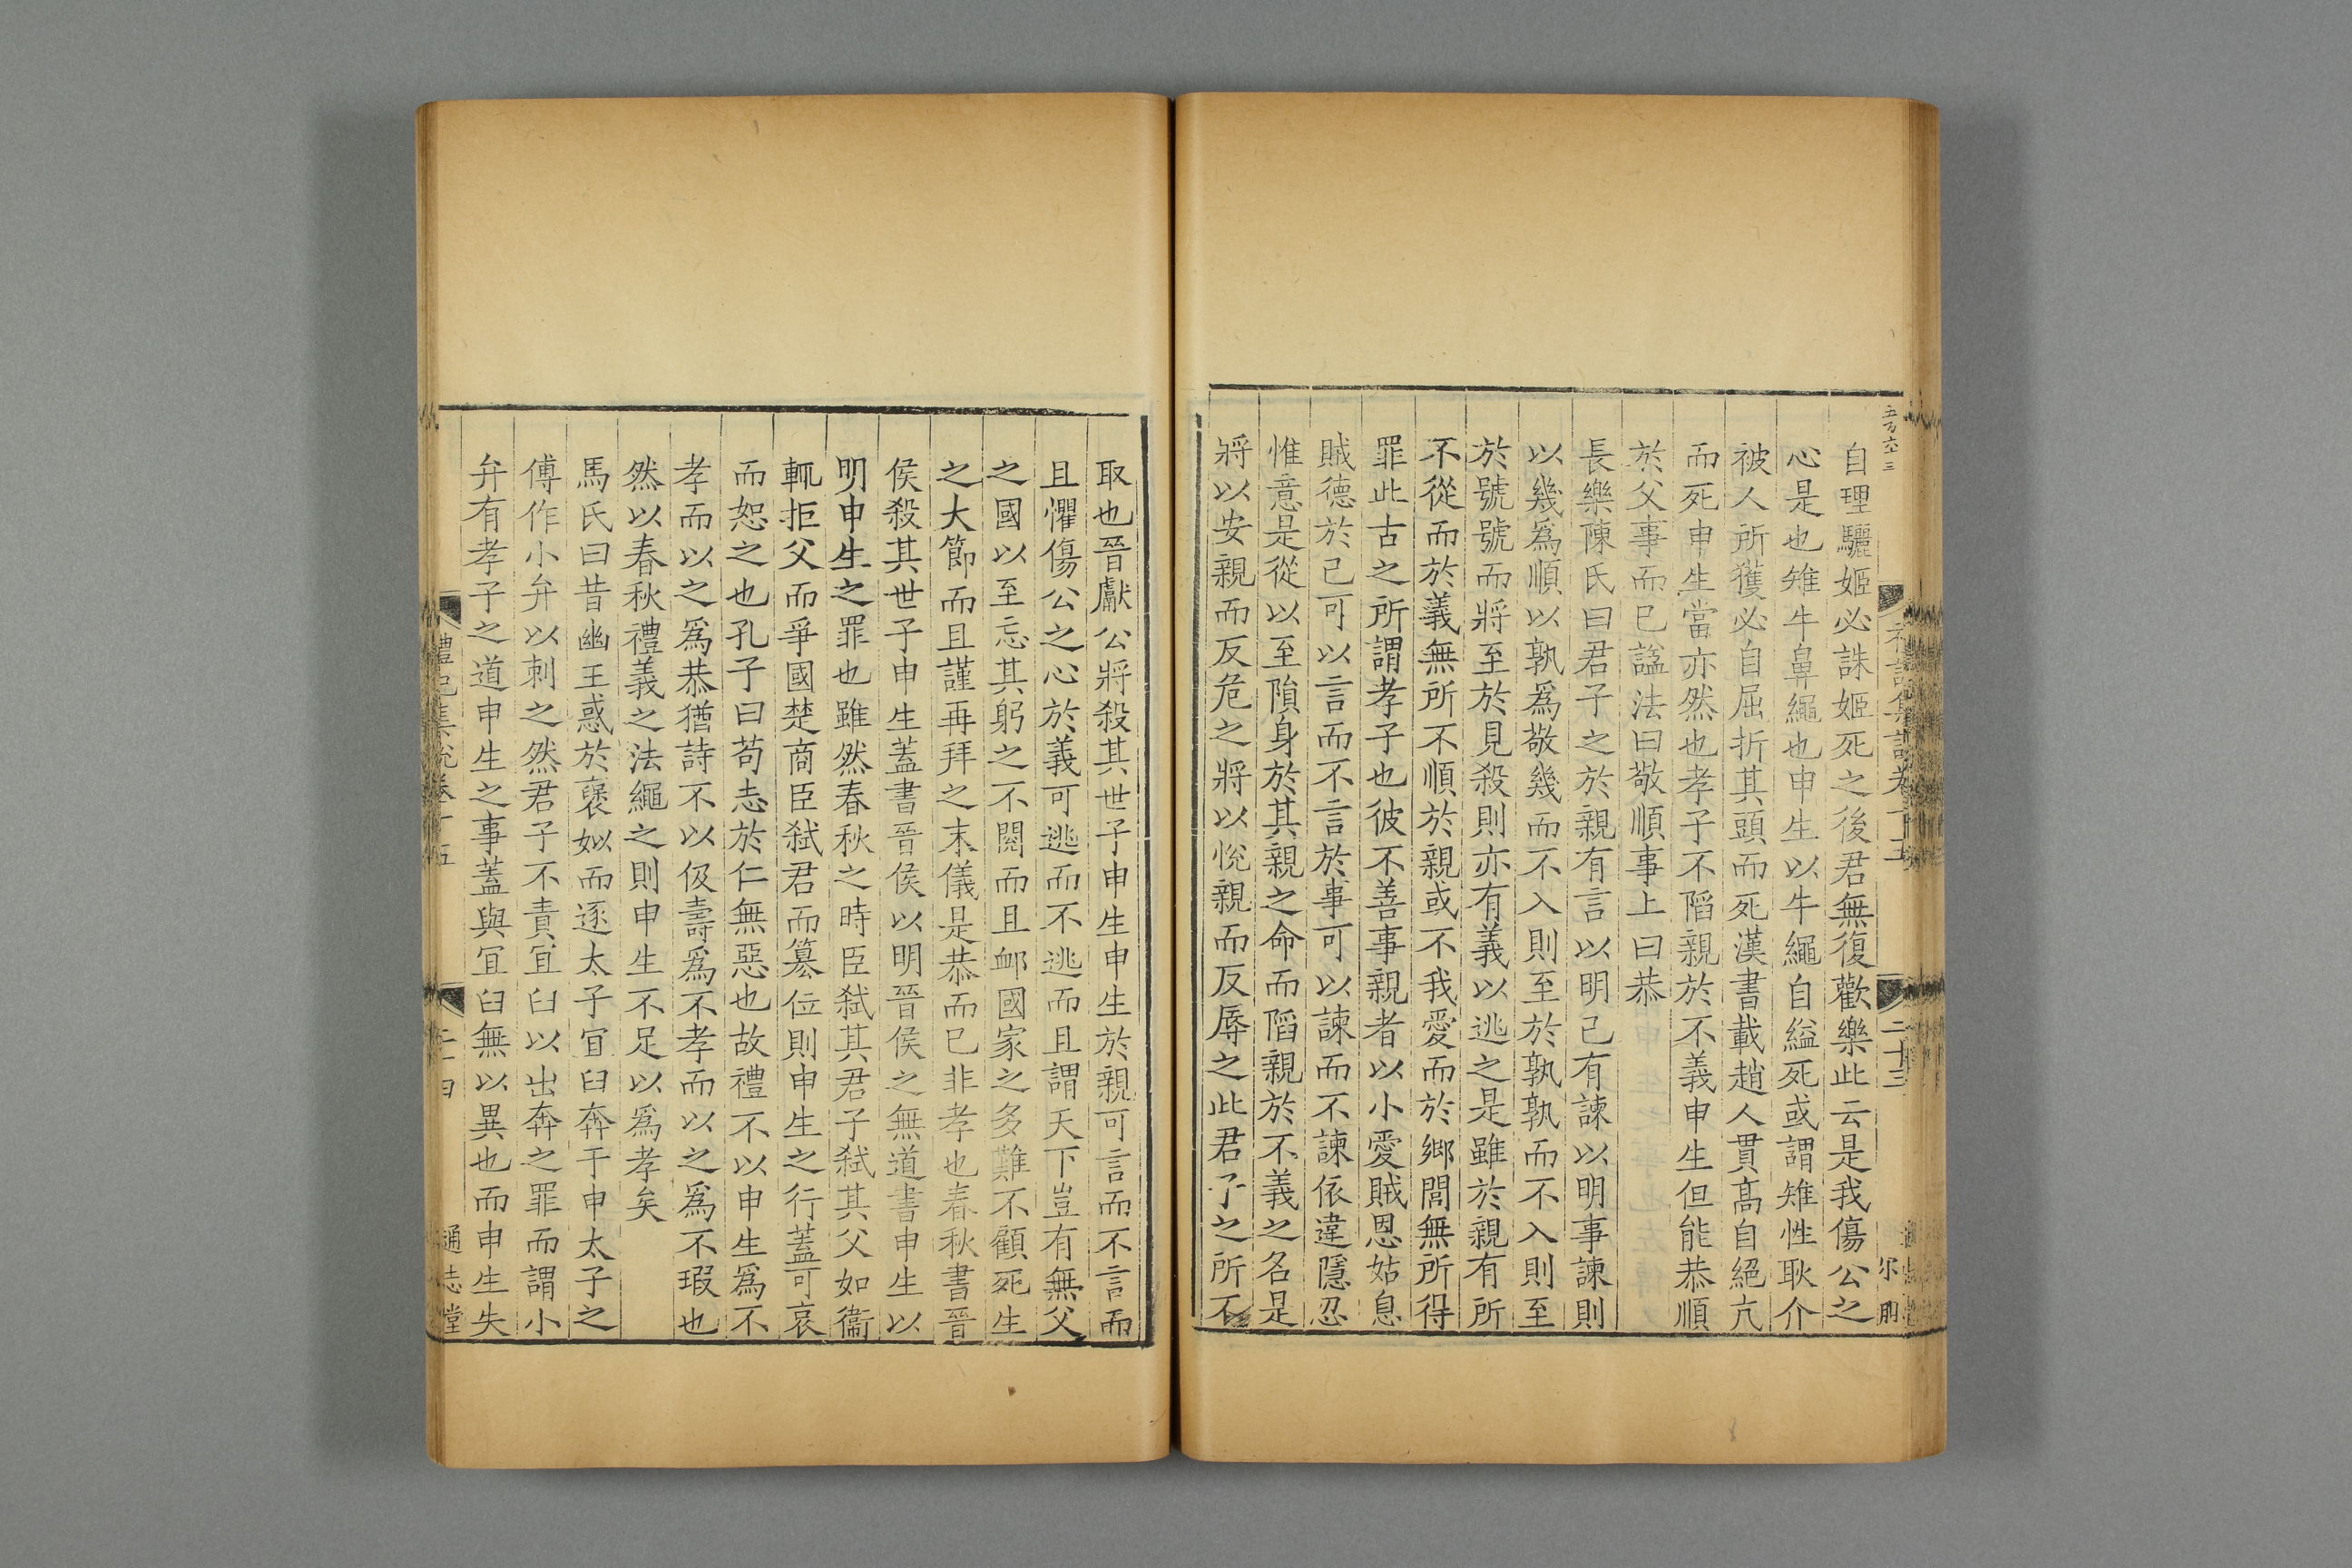 自理驪姬必誅姬死之後君無復歡樂此云是我傷公之
心是也雉牛鼻繩也申生以牛繩自縊死或謂雉性耿介
被人所獲必自屈折其頭而死漢書載趙人貫高自絕亢
而死申生當亦然也孝子不陷親於不義申生但能恭順
於父事而已諡法曰敬順事上曰恭
長樂陳氏曰君子之於親有言以明己有諫以明事諫則
以幾爲順以孰爲敬幾而不入則至於孰孰而不入則至
於號號而將至於見殺則亦有義以逃之是雖於親有所
不從而於義無所不順於親或不我愛而於鄉閭無所得
罪此古之所謂孝子也彼不善事親者以小愛賊恩姑息
賊德於己可以言而不言於事可以諫而不諫依違隱忍
惟意是從以至隕身於其親之命而陷親於不義之名是
將以安親而反危之將以悅親而反辱之此君子之所不
取也晉獻公將殺其世子申生申生於親可言而不言而
且懼傷公之心於義可逃而不逃而且謂天下豈有無父
之國以至忘其躬之不閱而且卹國家之多難不顧死生
之大節而且謹再拜之末儀是恭而已非孝也春秋書晉
侯殺其世子申生蓋書晉侯以明晉侯之無道書申生以
明申生之罪也雖然春秋之時臣弒其君子弒其父如衞
輒拒父而爭國楚商臣弒君而篡位則申生之行蓋可哀
而恕之也孔子曰苟志於仁無惡也故禮不以申生爲不
孝而以之爲恭猶詩不以伋壽爲不孝而以之爲不瑕也
然以春秋禮義之法繩之則申生不足以爲孝矣
馬氏曰昔幽王惑於襃姒而逐太子宜臼奔于申太子之
傅作小弁以刺之然君子不責宜臼以出奔之罪而謂小
弁有孝子之道申生之事蓋與宜臼無以異也而申生失
禮記集說卷十五
二十四
通志堂